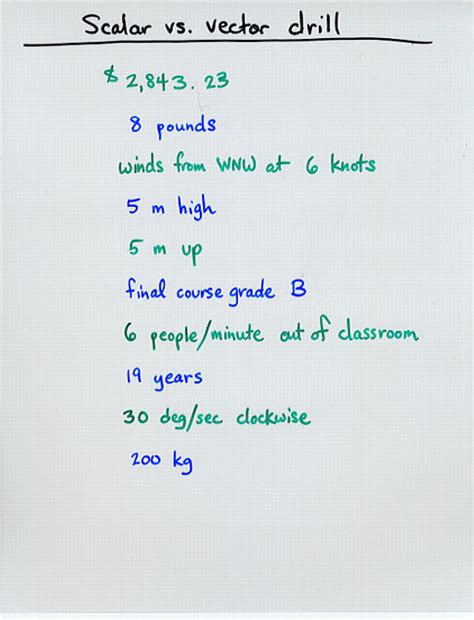 Scalar vs. vector drill
$ 2,843.23
8 pounds
winds from WNW at 6 knots
5 m high
5 m up
final course grade B
6 people/minute out of classroom
19 years
30 deg/sec clockwise
200 kg